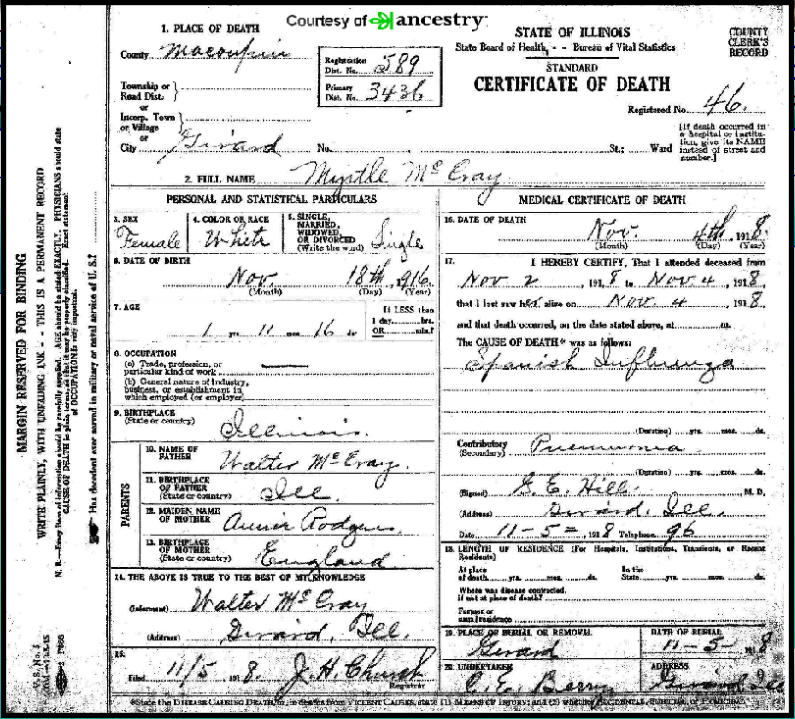 Courtesy of ancestry
STATE OF ILLINOIS
State Board of Health, - - Bureau of Vital Statistics
COUNTY CLERK'S RECORD
STANDARD
CERTIFICATE OF DEATH
Registered No. 46.
1. PLACE OF DEATH
County Macoupin
Registration Dist. No. 589
Township or Road Dist.
Primary Dist. No. 3436
or
Incorp. Town
or Village
or
City Girard No. St.; Ward
[If death occurred in a hospital or institution, give its NAME instead of street and number.]
2. FULL NAME Myrtle McCray
PERSONAL AND STATISTICAL PARTICULARS
3. SEX Female
4. COLOR OR RACE White
5. SINGLE, MARRIED, WIDOWED OR DIVORCED (Write the word) Single
6. DATE OF BIRTH
Nov. 18th, 1916
(Month) (Day) (Year)
7. AGE
If LESS than 1 day, hrs. OR min.?
1 yrs. 11 mos. 16 ds.
8. OCCUPATION
(a) Trade, profession, or particular kind of work
(b) General nature of industry, business, or establishment in which employed (or employer)
9. BIRTHPLACE
(State or country) Illinois.
PARENTS
10. NAME OF FATHER Walter McCray.
11. BIRTHPLACE OF FATHER (State or country) Ill.
12. MAIDEN NAME OF MOTHER Annie Rodgers
13. BIRTHPLACE OF MOTHER (State or country) England
14. THE ABOVE IS TRUE TO THE BEST OF MY KNOWLEDGE
(Informant) Walter McCray
(Address) Girard, Ill.
15.
Filed 11/5 1918. J. H. Church
Registrar
MEDICAL CERTIFICATE OF DEATH
16. DATE OF DEATH
Nov. 4th, 1918.
(Month) (Day) (Year)
17. I HEREBY CERTIFY, That I attended deceased from
Nov 2, 1918 to Nov 4, 1918,
that I last saw her alive on Nov. 4, 1918
and that death occurred, on the date stated above, at m.
The CAUSE OF DEATH* was as follows:
Spanish Influenza
(Duration) yrs. mos. ds.
Contributory (Secondary) Pneumonia.
(Duration) yrs. mos. ds.
(Signed) G. E. Hill M. D.
(Address) Girard, Ill.
Date 11-5- 1918 Telephone 96
18. LENGTH OF RESIDENCE (For Hospitals, Institutions, Transients, or Recent Residents)
At place of death yrs. mos. ds. In the State yrs. mos. ds.
Where was disease contracted, if not at place of death?
Former or usual residence
19. PLACE OF BURIAL OR REMOVAL Girard
DATE OF BURIAL 11-5- 1918
20. UNDERTAKER C. E. Berry
ADDRESS Girard Ill
*State the DISEASE CAUSING DEATH, or, in deaths from VIOLENT CAUSES, state (1) MEANS OF INJURY; and (2) whether ACCIDENTAL, SUICIDAL, or HOMICIDAL.
MARGIN RESERVED FOR BINDING
WRITE PLAINLY, WITH UNFADING INK - - THIS IS A PERMANENT RECORD
N. B.—Every item of information should be carefully supplied. AGE should be stated EXACTLY. PHYSICIANS should state CAUSE OF DEATH in plain terms, so that it may be properly classified. Exact statement of OCCUPATION is very important.
Has decedent ever served in military or naval service of U. S.?